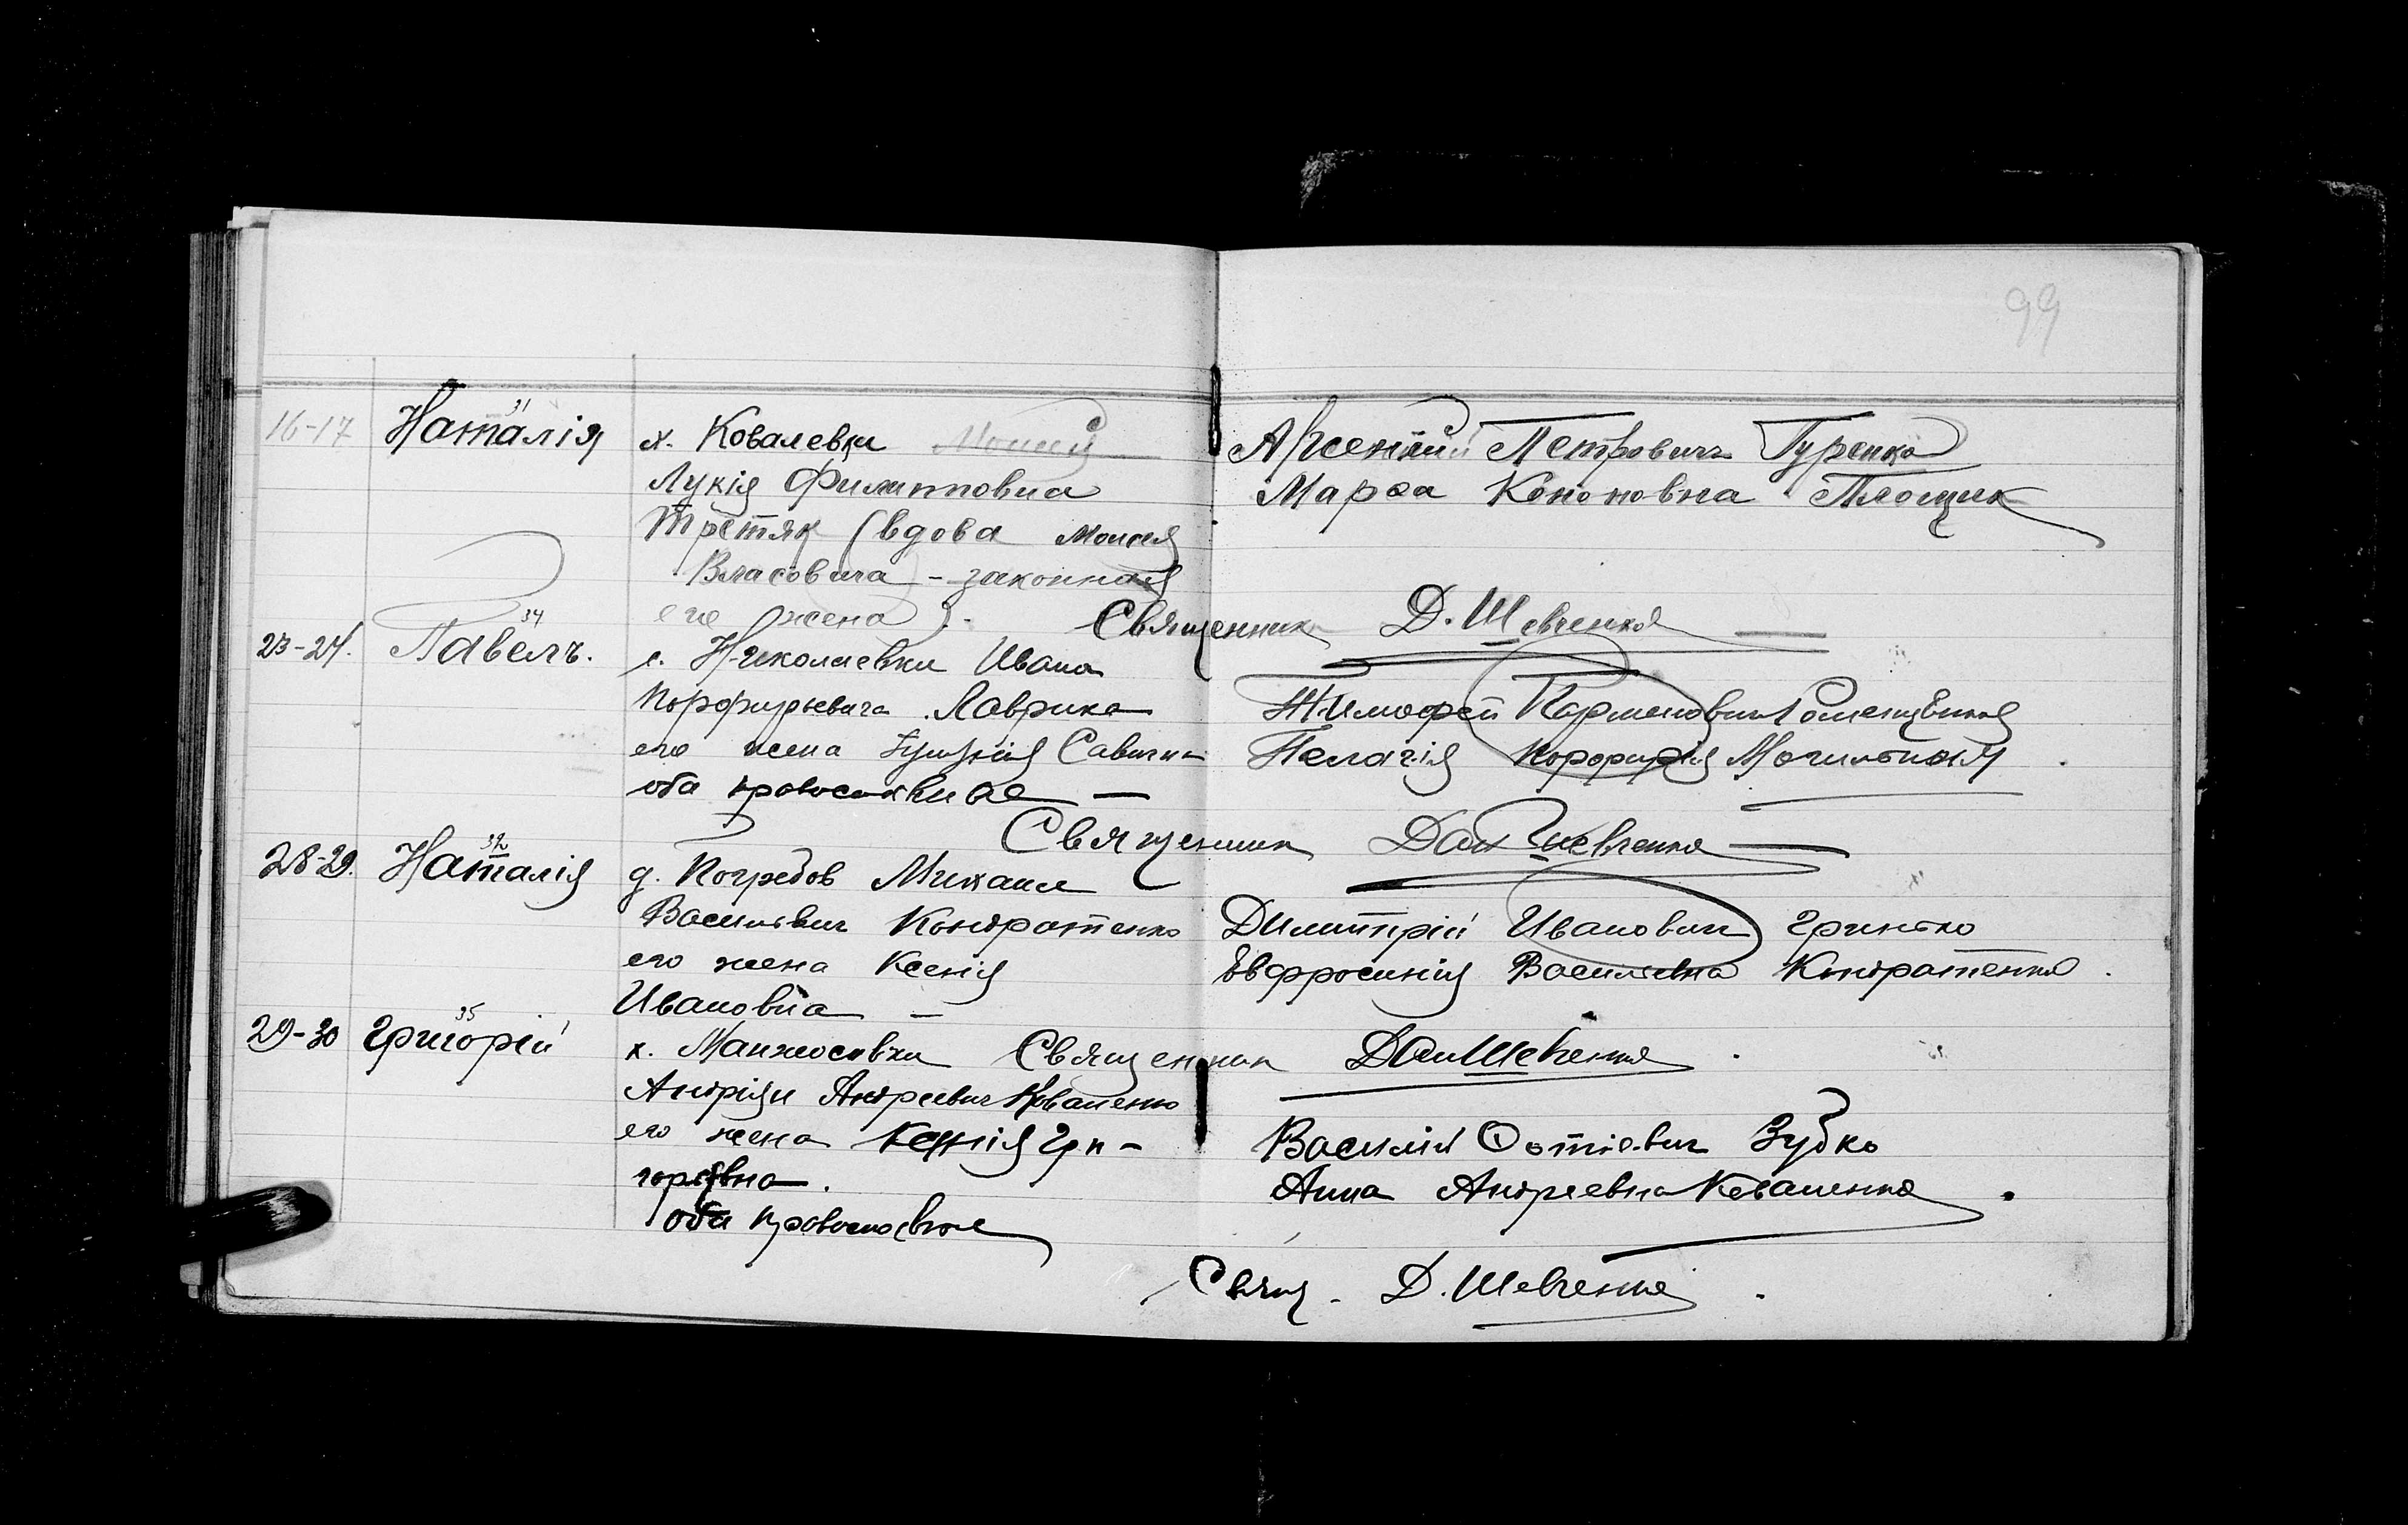 99
16-17 Наталія 31 х. Ковалевки Моисей Арсентий Петровичъ Гуренко
Лукія Филипповна Марѳа Кононовна
Третяк (вдова Моисея
Власовича - законная
его жена). Священник Д. Шевченко
23-24. Павелъ. 34 с. Николаевки Ивана
Порфирьевича Лаврика Тимофей Парменович
его жена Савична Пелагія Порфирія Могильная
оба православные —
Священник Дан Шевченко
28-29. Наталія 32 д. Погребов Михаил
Васильевич Кондратенко Димитрій Иванович Гринько
его жена Ксенія Евфросинія Васильевна Кондратенко.
Ивановна —
29-30 Григорій 35 х. Манжосовки Священник Дан Шевченко
Андріян Андреевич Коваленко
его жена Ксенія Гри- Василій Фотіевич Зубко
горьевна. Анна Андреевна Коваленко.
оба православные
Свящ. Д. Шевченко.